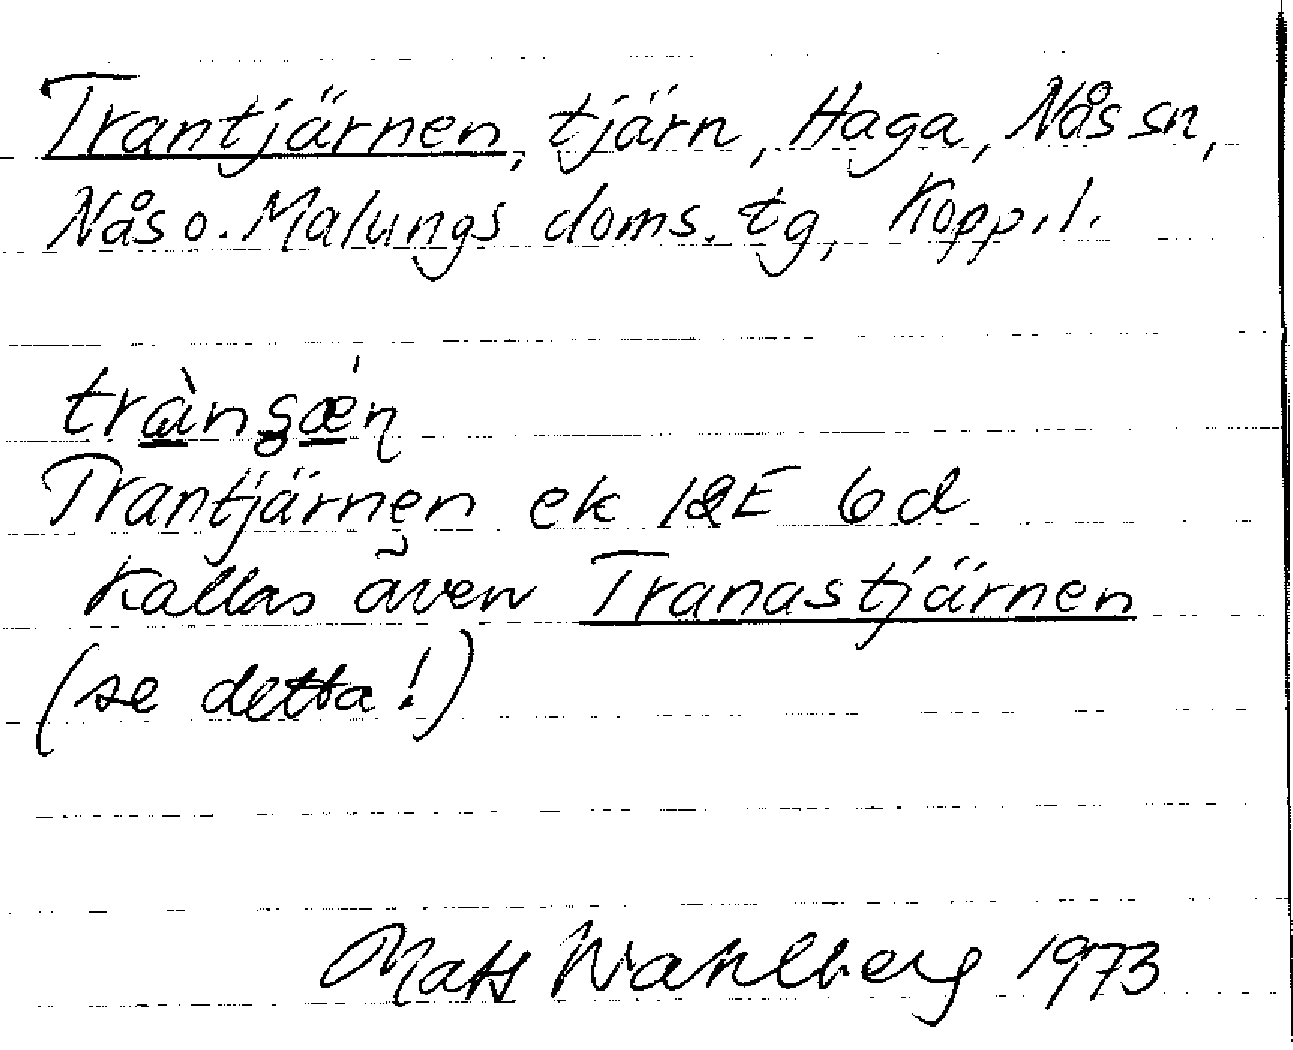 Trantjärnen, tjärn, Haga, Nås sn,
Nås o. Malungs doms. tg, Kopp. l.
Trantjärnen ek 12E 6d
Kallas även Tranastjärnen
(se detta!)
Mats Wahlberg 1973